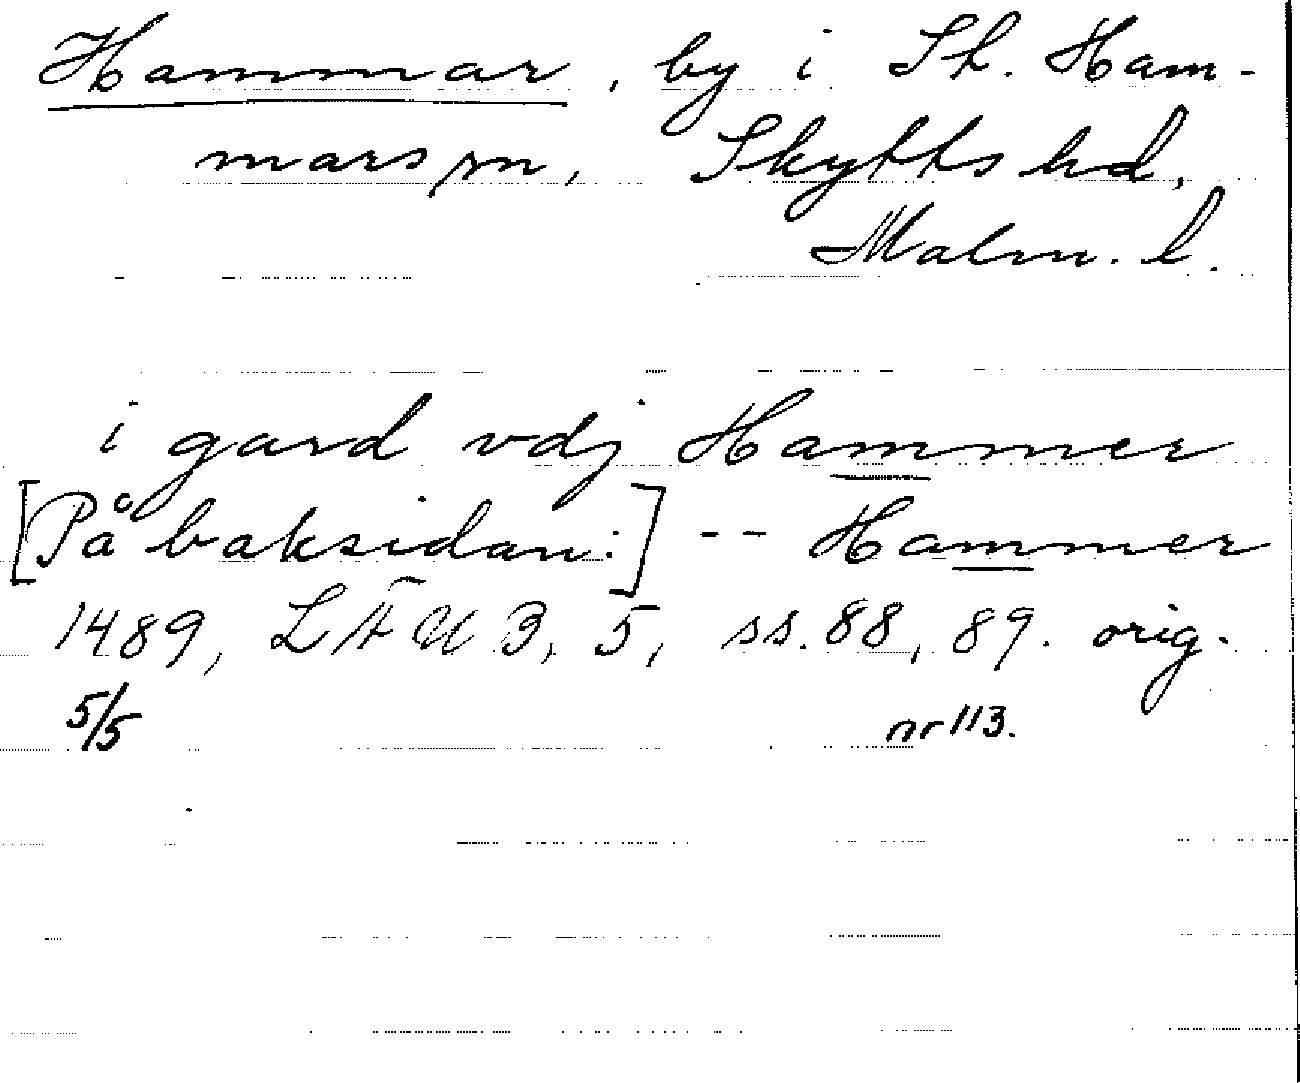 Hammar, by i St. Ham-
mars sn, Skytts hd,
Malm. l.
i gard vdj Hammer
[På baksidan:] -- Hammer
1489, LÄUB, 5, ss. 88, 89. orig.
5/5 nr 113.